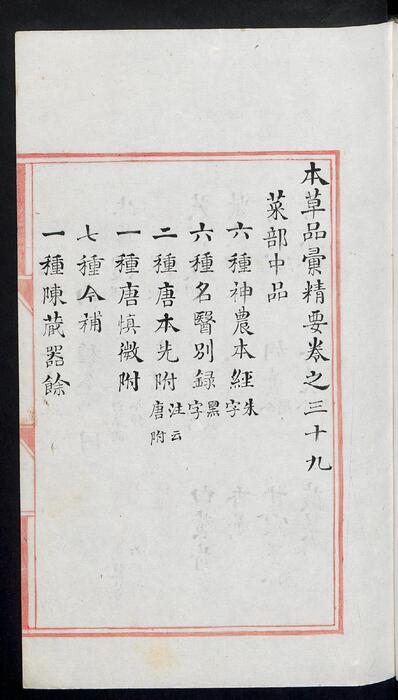 本草品彙精要卷之三十九
菜部中品
六種神農本經朱字
六種名醫別録黑字
二種唐本先附注云唐附
一種唐慎微附
七種今補
一種陳藏器餘